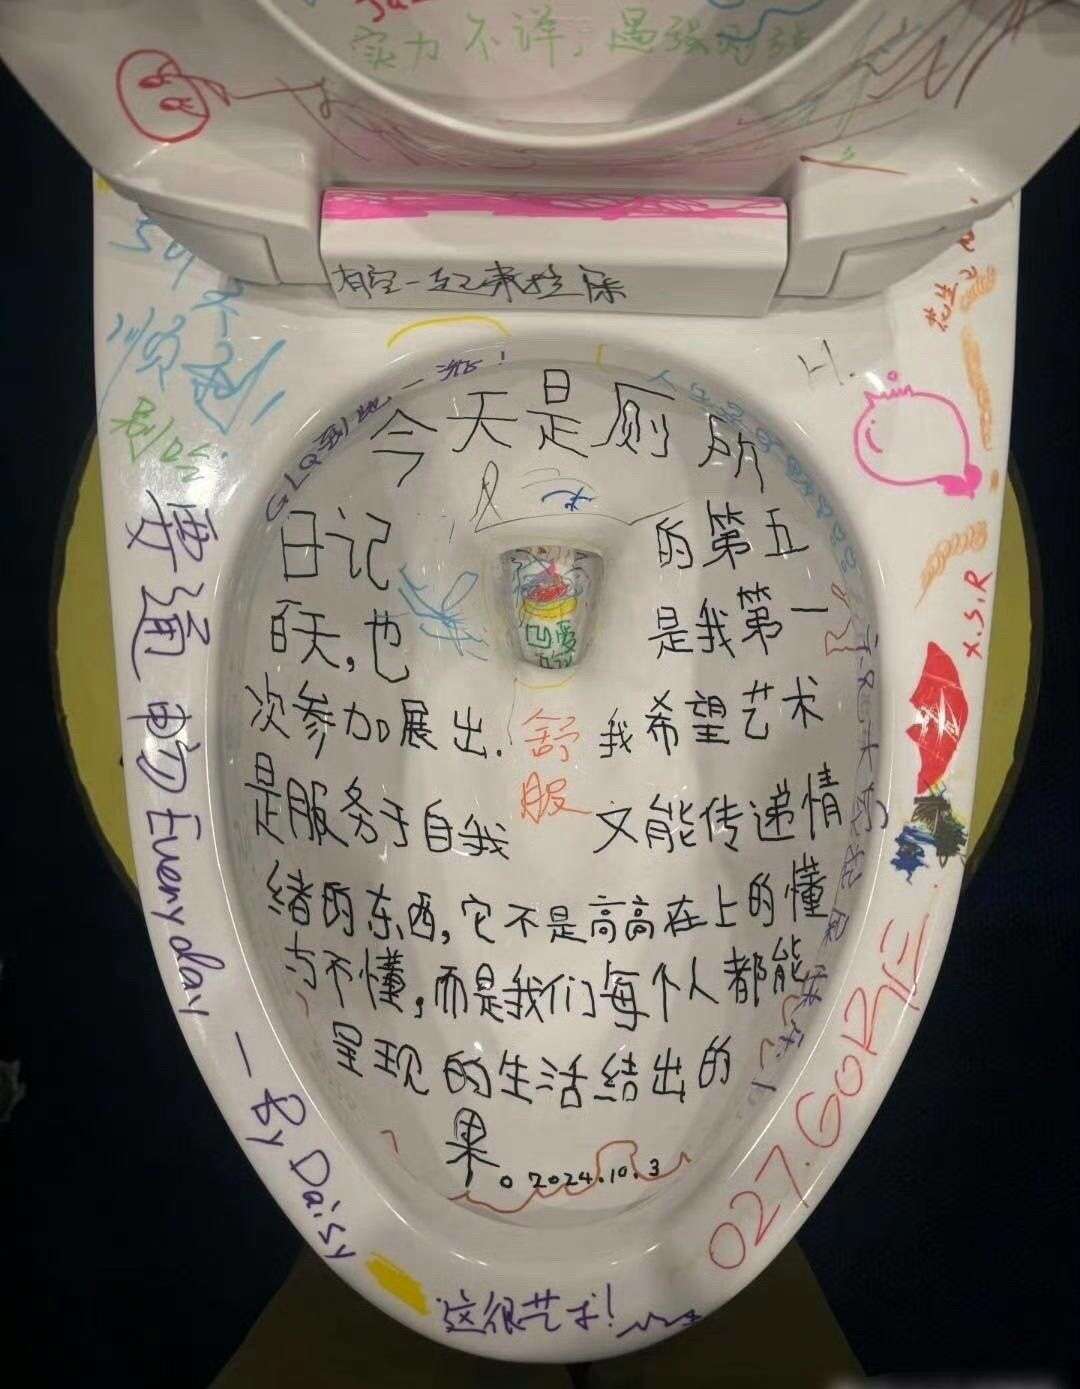 实力不详,遇强则强
有空一起来拉屎
GLQ到此一游!
H.
今天是厕所
日记的第五
百天,也是我第一
次参加展出.我希望艺术
是服务于自我又能传递情
绪的东西,它不是高高在上的懂
与不懂,而是我们每个人都能
呈现的生活结出的
果。2024.10.3
舒
服
顺
别哈
要通畅Everyday — By Daisy
X.S.R
027.GORl
这很艺术!